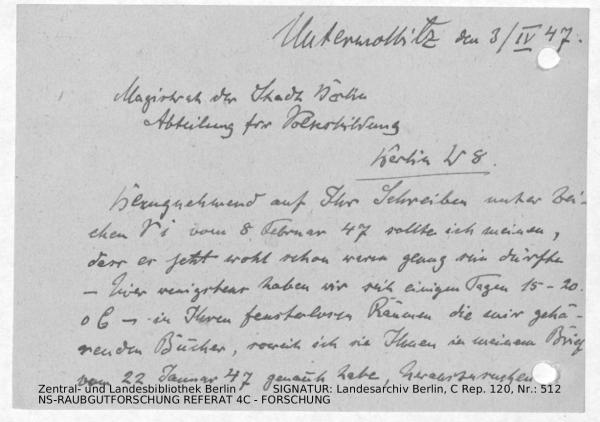 Unterwössitz den 3/IV 47.
Magistrat der Stadt Berlin
Abteilung für Volksbildung
Berlin W 8.
Bezugnehmend auf Ihr Schreiben unter Zei-
chen V i vom 8 Februar 47 sollte ich meinen,
dass es jetzt wohl schon warm genug sein dürfte
– hier wenigstens haben wir seit einigen Tagen 15 - 20.
o C – in Ihren fensterlosen Räumen die mir gehö-
renden Bücher, soweit ich sie Ihnen in meinem Brief
vom 22 Januar 47 genannt habe, herauszusuchen
Zentral- und Landesbibliothek Berlin / SIGNATUR: Landesarchiv Berlin, C Rep. 120, Nr.: 512
NS-RAUBGUTFORSCHUNG REFERAT 4C - FORSCHUNG